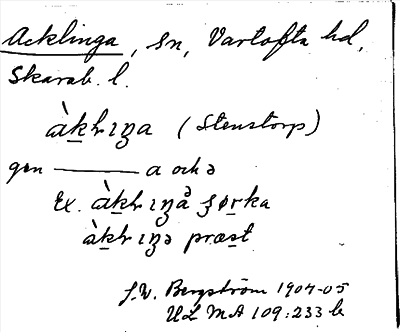 Acklinga, sn, Vartofta hd,
Skarab. l.
àkլıŋa (Stenstorp)
gen ——— a och ə
Ex. àkլıŋa ʂørka
àkլıŋə præst
J.W. Bergström 1904-05
ULMA 109:233 b